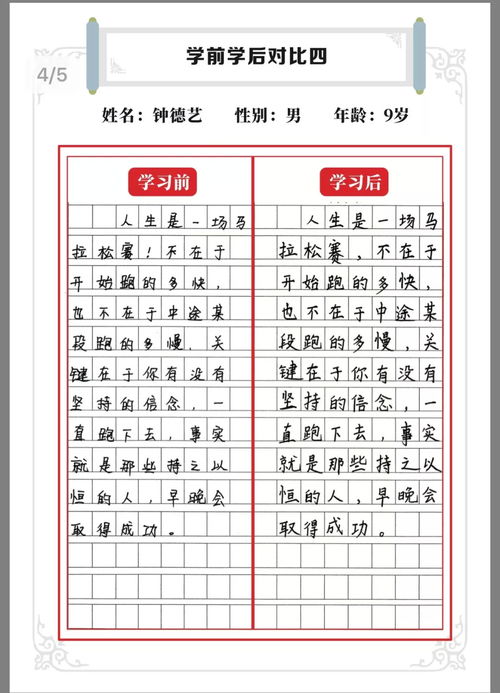 学前学后对比四
4/5
姓名：钟德艺 性别：男 年龄：9岁
学习前
人生是一场马
拉松赛！不在于
开始跑的多快，
也不在于中途某
段跑的多慢、关
键在于你有没有
坚持的信念，一
直跑下去，事实
就是那些持之以
恒的人，早晚会
取得成功。
学习后
人生是一场马
拉松赛，不在于
开始跑的多快，
也不在于中途某
段跑的多慢，关
键在于你有没有
坚持的信念，一
直跑下去，事实
就是那些持之以
恒的人，早晚会
取得成功。